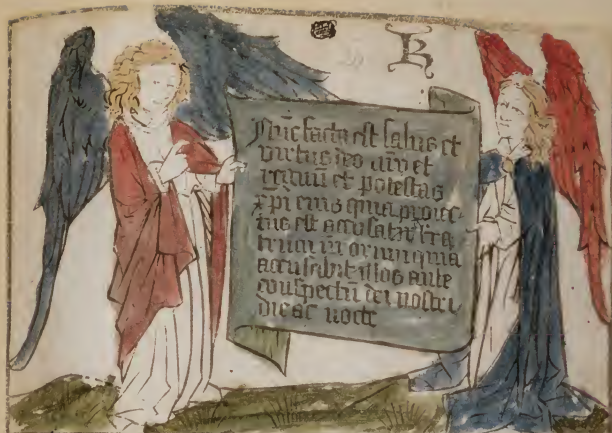 K
Nūc facta est salus et
virtus et
regnū et potestas
xpi eius quia proiec
tus est accusator fra
trum quia
accusabit illos ante
conspectū dei nostri
die ac nocte